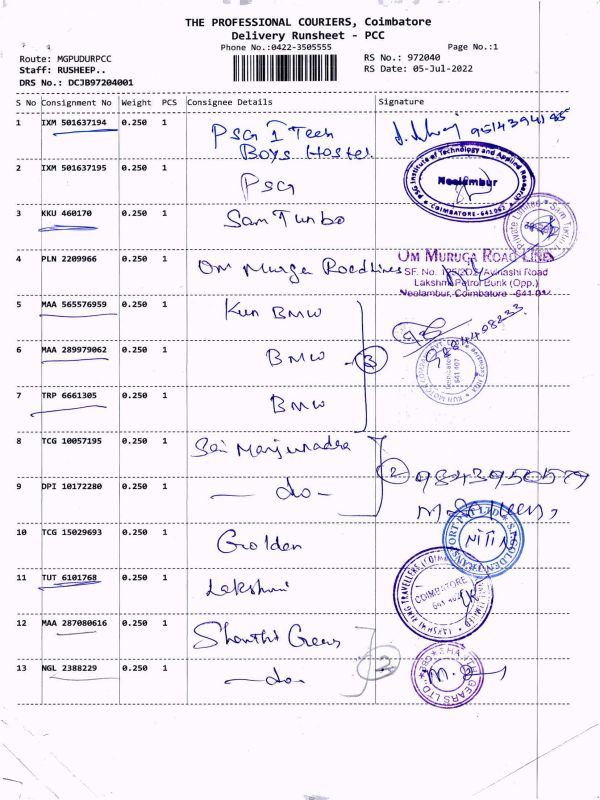 THE PROFESSIONAL COURIERS, Coimbatore
Delivery Runsheet - PCC
Phone No.:0422-3505555
Page No.:1
Route: MGPUDURPCC
RS No.: 972040
Staff: RUSHEEP..
RS Date: 05-Jul-2022
DRS No.: DCJB97204001
S No Consignment No Weight PCS Consignee Details Signature
1 IXM 501637194 0.250 1 PSG I Tech
Boys Hostel
2 IXM 501637195 0.250 1 PSG
PSG Institute of Technology and Applied Research
Neelambur
COIMBATORE-641 062
3 KKU 460170 0.250 1 Sam Turbo
Private Limited Sam Turbo
4 PLN 2209966 0.250 1 Om Muruga Roadlines
OM MURUGA ROAD LINES
SF. No. Avinashi Road
Lakshmi Petrol Bunk (Opp.)
Neelambur, Coimbatore -641
5 MAA 565576959 0.250 1 Kun BMW
6 MAA 289979062 0.250 1 BMW 3
9884408233
7 TRP 6661305 0.250 1 BMW
8 TCG 10057195 0.250 1 Sai Manjunadra
2 9843950579
9 DPI 10172280 0.250 1 — do —
10 TCG 15029693 0.250 1 Golden
NITIN
11 TUT 6101768 0.250 1 Lakshmi
COIMBATORE
12 MAA 287080616 0.250 1 Shanthi Gears
2
13 NGL 2388229 0.250 1 — do —
GEARS LTD.